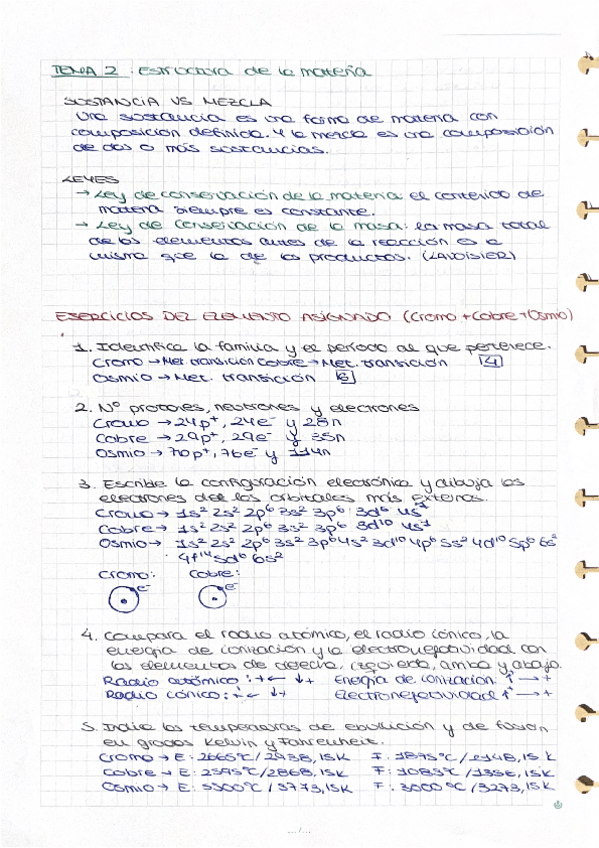 TEMA 2: Estructura de la materia
SUSTANCIA VS MEZCLA
Una sustancia es una forma de materia con
composición definida. Y la mezcla es una composición
de dos o más sustancias.
LEYES
→ Ley de conservación de la materia: el contenido de
materia siempre es constante.
→ Ley de conservación de la masa: la masa total
de los elementos antes de la reacción es la
misma que la de los productos. (LAVOISIER)
EJERCICIOS DEL ELEMENTO ASIGNADO (Cromo + Cobre + Osmio)
1. Identifica la familia y el período al que pertenece.
Cromo → Met. transición Cobre → Met. transición [4]
Osmio → Met. transición [6]
2. Nº protones, neutrones y electrones
Cromo → 24p⁺, 24e⁻ y 28n
Cobre → 29p⁺, 29e⁻ y 35n
Osmio → 70p⁺, 76e⁻ y 114n
3. Escribe la configuración electrónica y dibuja los
electrones de los orbitales más externos.
Cromo → 1s² 2s² 2p⁶ 3s² 3p⁶ 3d⁶ 4s¹
Cobre → 1s² 2s² 2p⁶ 3s² 3p⁶ 3d¹⁰ 4s¹
Osmio → 1s² 2s² 2p⁶ 3s² 3p⁶ 4s² 3d¹⁰ 4p⁶ 5s² 4d¹⁰ 5p⁶ 6s²
4f¹⁴ 5d⁶ 6s²
Cromo: Cobre:
e⁻ e⁻
4. Compara el radio atómico, el radio iónico, la
energía de ionización y la electronegatividad con
los elementos de derecha, izquierda, arriba y abajo.
Radio atómico: + ← ↓+ Energía de ionización: ↑ → +
Radio iónico: + ← ↓+ Electronegatividad ↑⁺ → +
5. Indica las temperaturas de ebullición y de fusión
en grados Kelvin y Fahrenheit.
Cromo → E: 2665ºC / 2938,15K F: 1875ºC / 2148,15 K
Cobre → E: 2595ºC / 2868,15K F: 1083ºC / 1356,15K
Osmio → E: 5500ºC / 5773,15K F: 3000ºC / 3273,15K